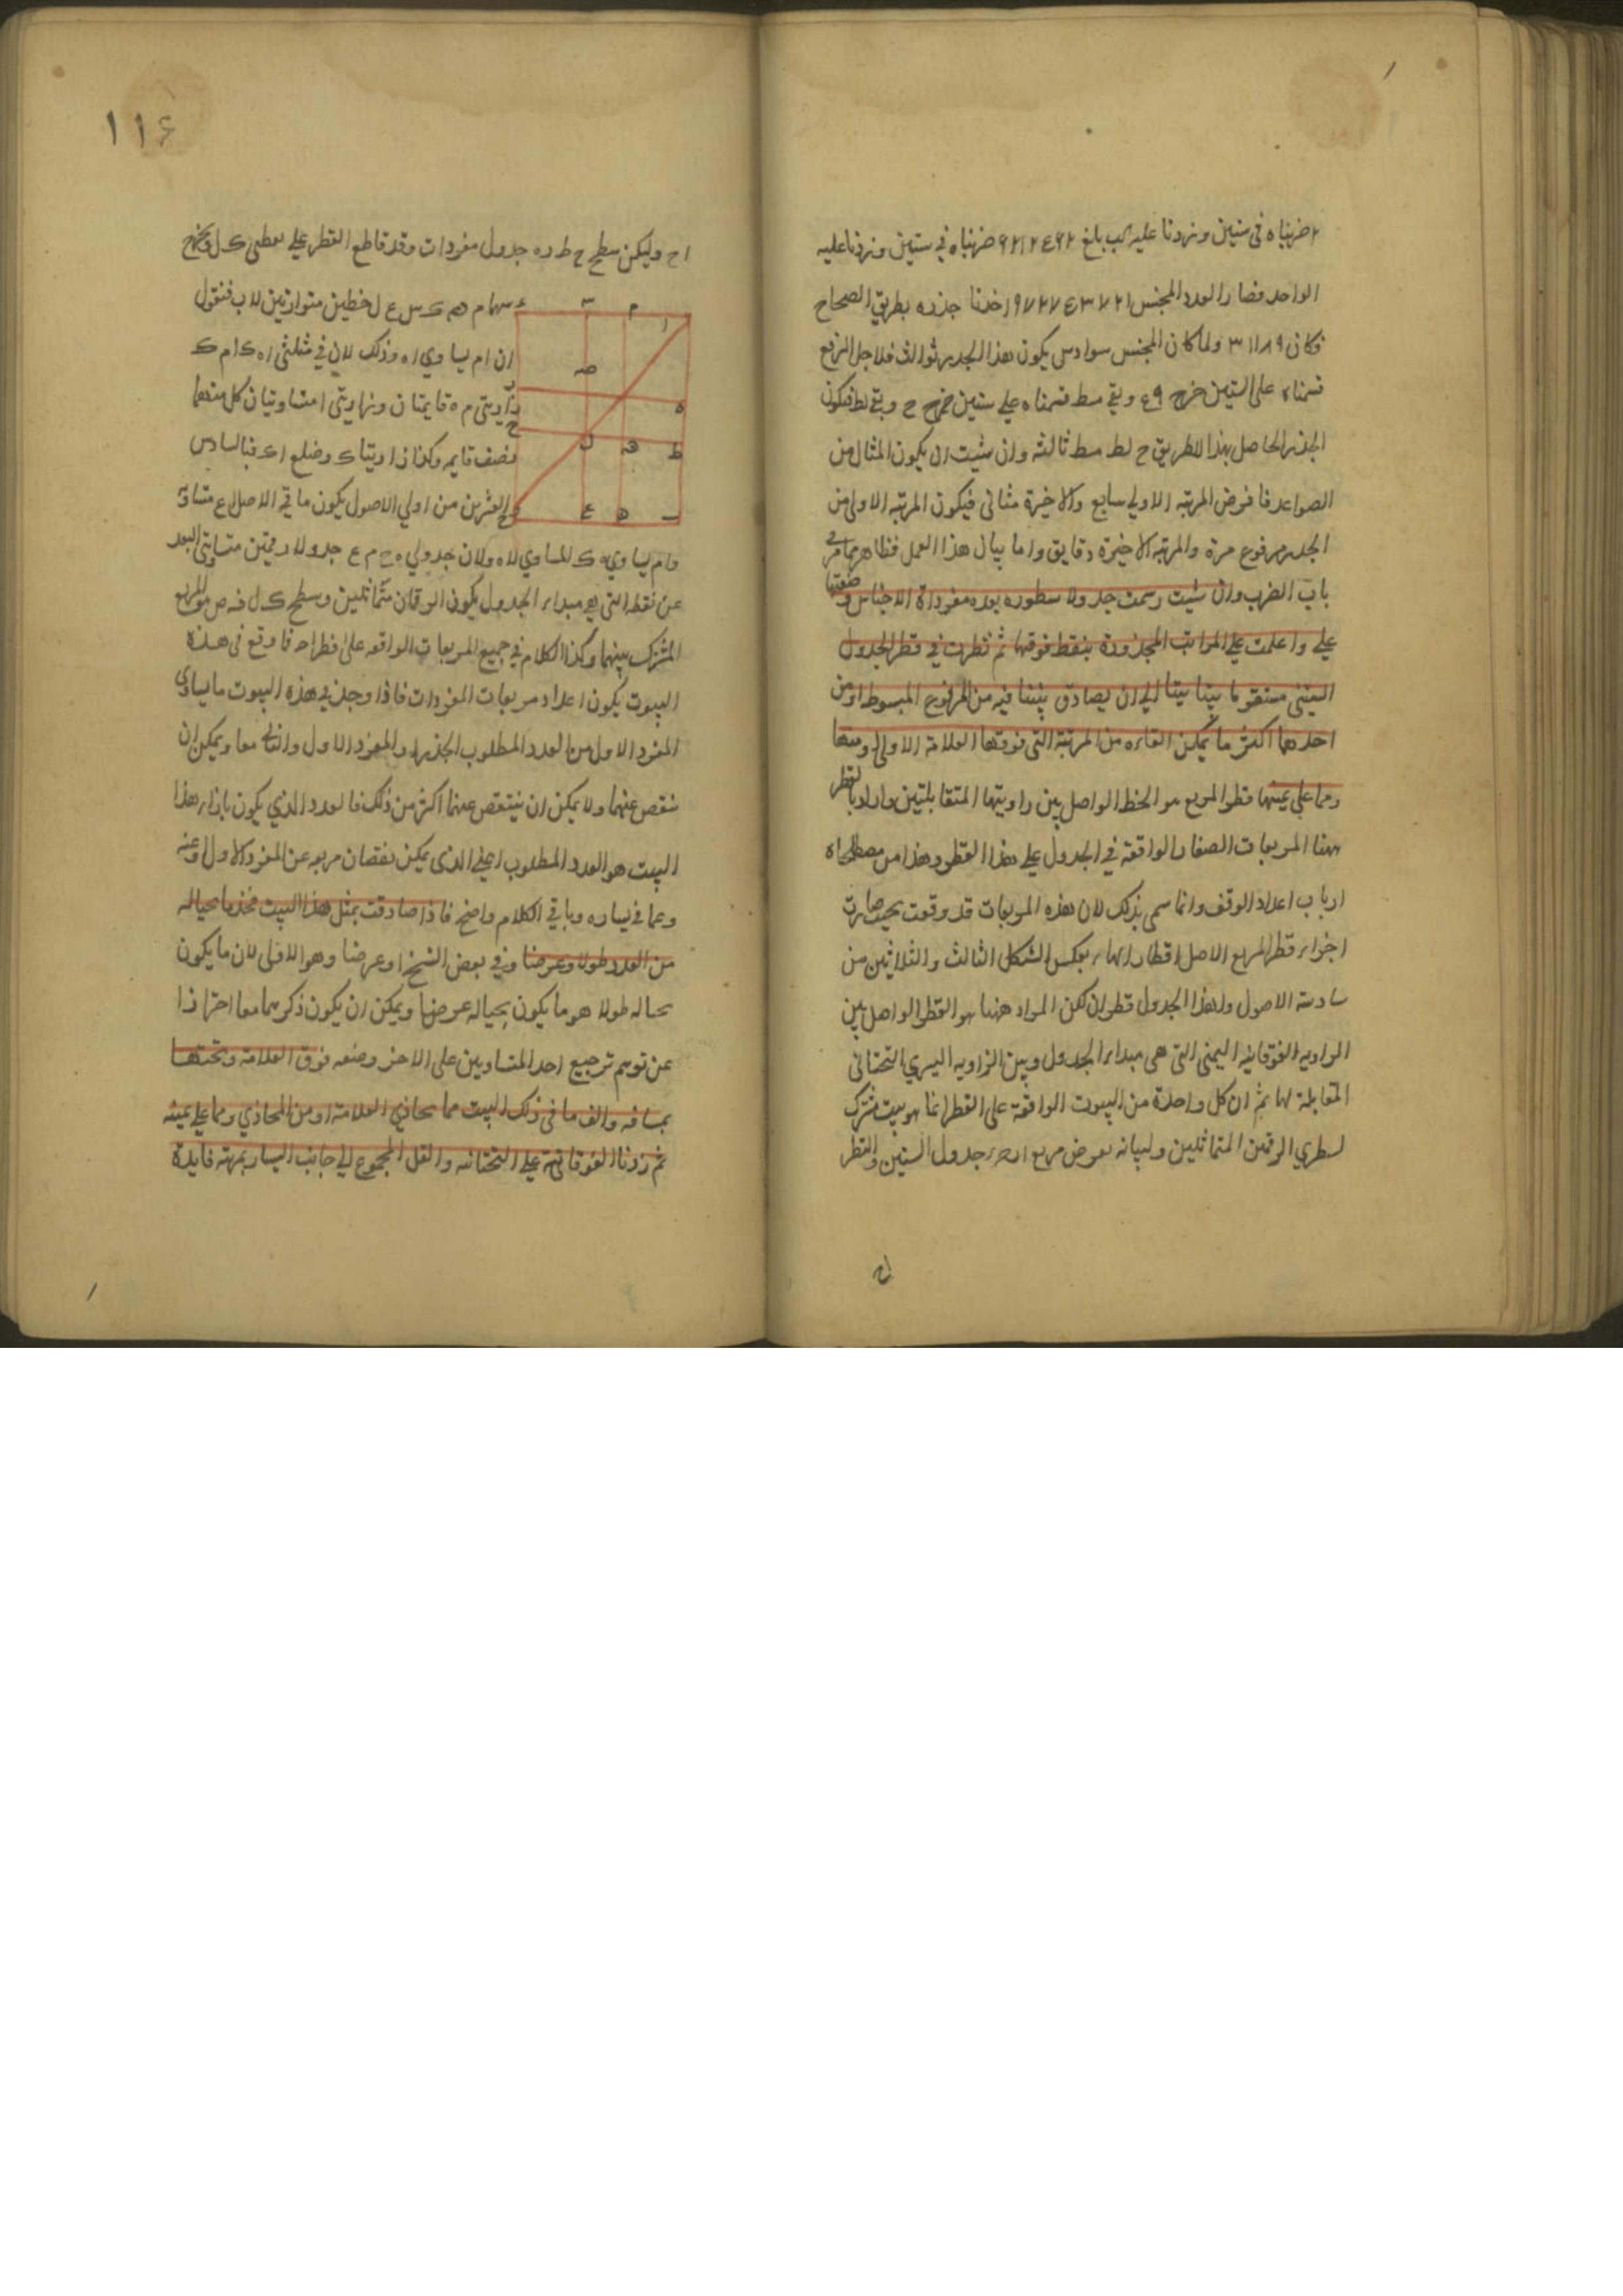 ضربناه في ستين وزدنا عليه كب بلغ ضربناه في ستين وزدنا عليه
الواحد فصار العدد المجنس اخذنا جذره بطريق الصحاح
فكان ٣١١٨٩ ولما كان المجنس سوادس يكون هذا الجذر ثوالث فلاجل الرفع
قسمناه على الستين خرج وبقي مط قسمناه علي ستين خرج ح وبقي لط فيكون
الجذر الحاصل بهذا الطريق ح لط مط ثالثه وان شئت ان يكون المثال من
الصواعد فافرض المرتبه الاولي سابع والاخيرة مثاني فيكون المرتبه الاولى من
الجذر مرفوع مرة والمرتبه الاخيرة دقايق واما بيان هذا العمل فظاهر مما مر في
باب الضرب وان شئت رسمت جدولا سطوره بعده مفرداة الاجناس وضعتها
علي واعلمت علي المراتب المجذورة بنقط فوقها ثم نظرت في قطر الجدول
الستيني مستقريا بيتا بيتا الي ان يصادق بيتا فيه من المرفوع المبسوط او من
احدهما اكثر ما يمكن القاءه من المرتبة التي فوقها العلامة الاولي ومنها
ومما علي يمينها قطر المربع هو الخط الواصل بين زاويتها المتقابلتين واراد بالقطر
ههنا المربعات الصغار الواقعة في الجدول علي هذا القطر وهذا من مصطلحات
ارباب اعداد الوقف وانما سمي بذلك لان هذه المربعات قد وقعت بحيث صارت
اجزاء قطر المربع الاصل اقطارا لها بعكس الشكل الثالث والثلاثين من
سادسة الاصول ولهذا الجدول قطران لكن المراد ههنا هو القطر الواصل بين
الزاويه الفوقانيه اليمنى التي هي مبداء الجدول وبين الزاويه اليسري التحتاني
المقابلة لها ثم ان كل واحدة من البيوت الواقعة على القطر انما هو بيت مشترك
لسطري الرقمين المتماثلين ولبيانه نعرض مربع جدول الستين والقطر
اح
١١٤
اح وليكن سطح ح ط ره جدول مفردات وقد قاطع القطر علي نقطتي ك ل ونخرج
سهما م هـ ك س ع ل خطين متوازيين لاب فنقول
ان ام يساوي اه وذلك لان في مثلثي اه ك ام ك
زاويتي م ه قايمتان وزاويتي ا متساويتان كل منهما
نصف قايمه وكذا زاويتا ك وضلع اك فبالسادس
والعشرين من اولي الاصول يكون ما في الاصلاع متساو
وام يساوي ه ك المساوي لاه ولان جدولي ه ح م ع جدولا رقمين متساويتي البعد
عن نقطة ا التي هي مبداء الجدول يكون الرقمان متماثلين وسطح ك ل ف ص هو المربع
المشترك بينهما وكذا الكلام في جميع المربعات الواقعه على قطر اح فما وقع في هذة
البيوت يكون اعداد مربعات المفردات فاذا وجد في هذه البيوت ما يساوي
المفرد الاول من العدد المطلوب الجذر او المفرد الاول والثاني معا ويمكن ان
ينقص عنهما ولا يمكن ان ينتقص عنهما اكثر من ذلك فالعدد الذي يكون بازاء هذا
البيت هو العدد المطلوب اعني الذي يمكن نقصان مربعه عن المفرد الاول وعنه
وعما في يساره وباقي الكلام واضح فاذا صادفت بمثل هذا البيت فخذ ما بحياله
من العدد طولا وعرضا وفي بعض النسخ او عرضا وهو الاولى لان ما يكون
بحياله طولا هو ما يكون بحياله عرضا ويمكن ان يكون ذكرهما معا احترازا
عن توهم ترجيح احد المتساويين على الاخر وضعه فوق العلامة وتحتها
بمسافه والف ما في ذلك البيت مما يحاذي العلامة او من المحاذي ومما علي يمينه
ثم زدنا الفوقانية علي التحتانيه وانقل المجموع الي جانب اليسار بمرتبه فايدة